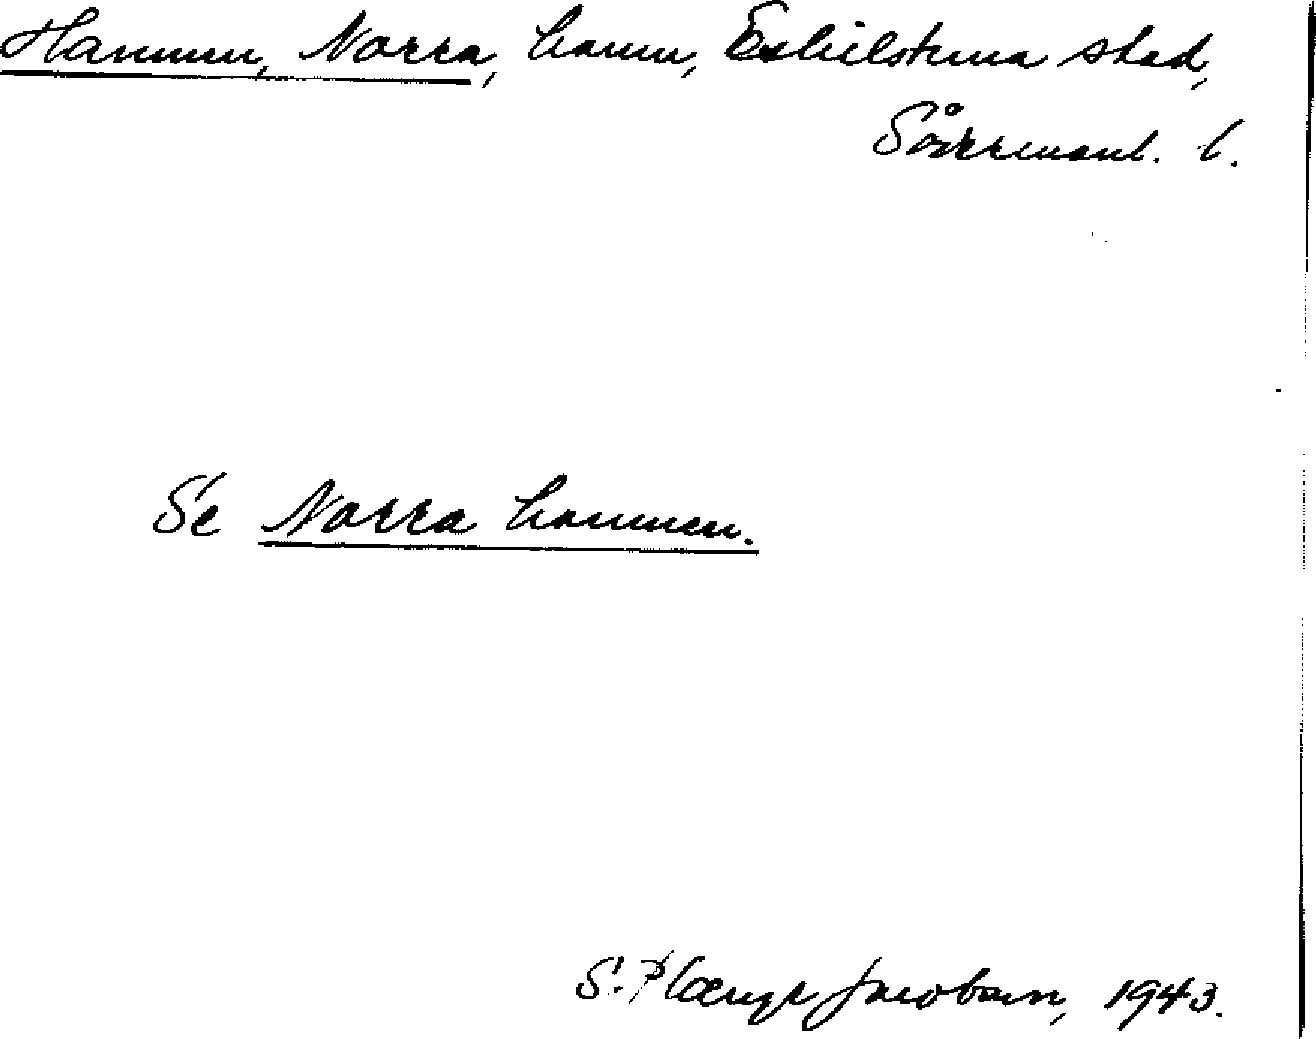 Hamnen, Norra, hamn, Eskilstuna stad,
Södermanl. l.
Se Norra hamnen.
S. Plænge Jacobson, 1943.